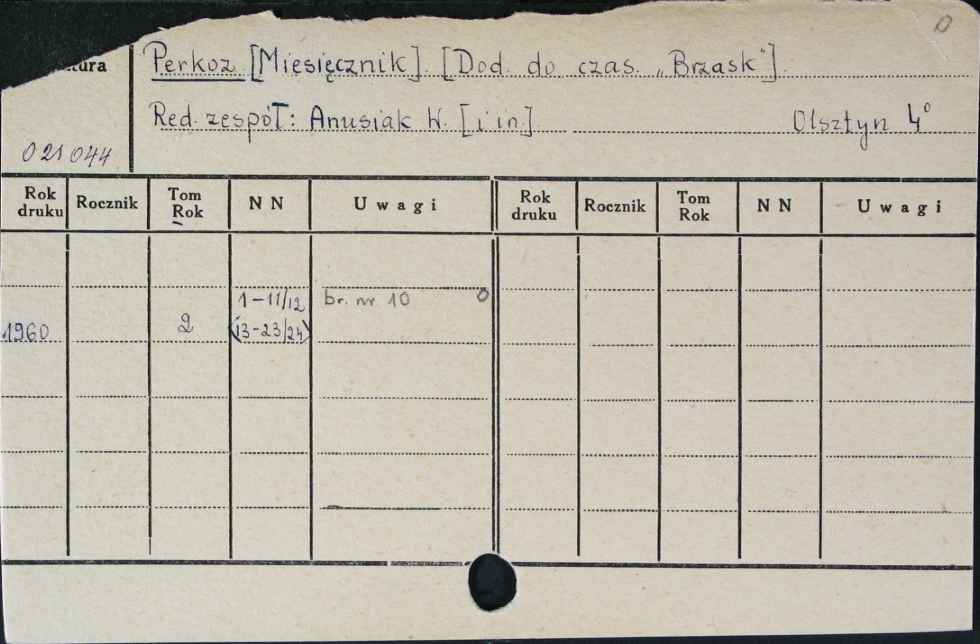 Perkoz [Miesięcznik]. [Dod. do czas. „Brzask"].
tura
Red. zespół: Anusiak W. [i in.] Olsztyn 4°
021044
Rok druku Rocznik Tom Rok N N Uwagi Rok druku Rocznik Tom Rok N N Uwagi
1-11/12 br. nr 10
1960 2 (13-23/24)